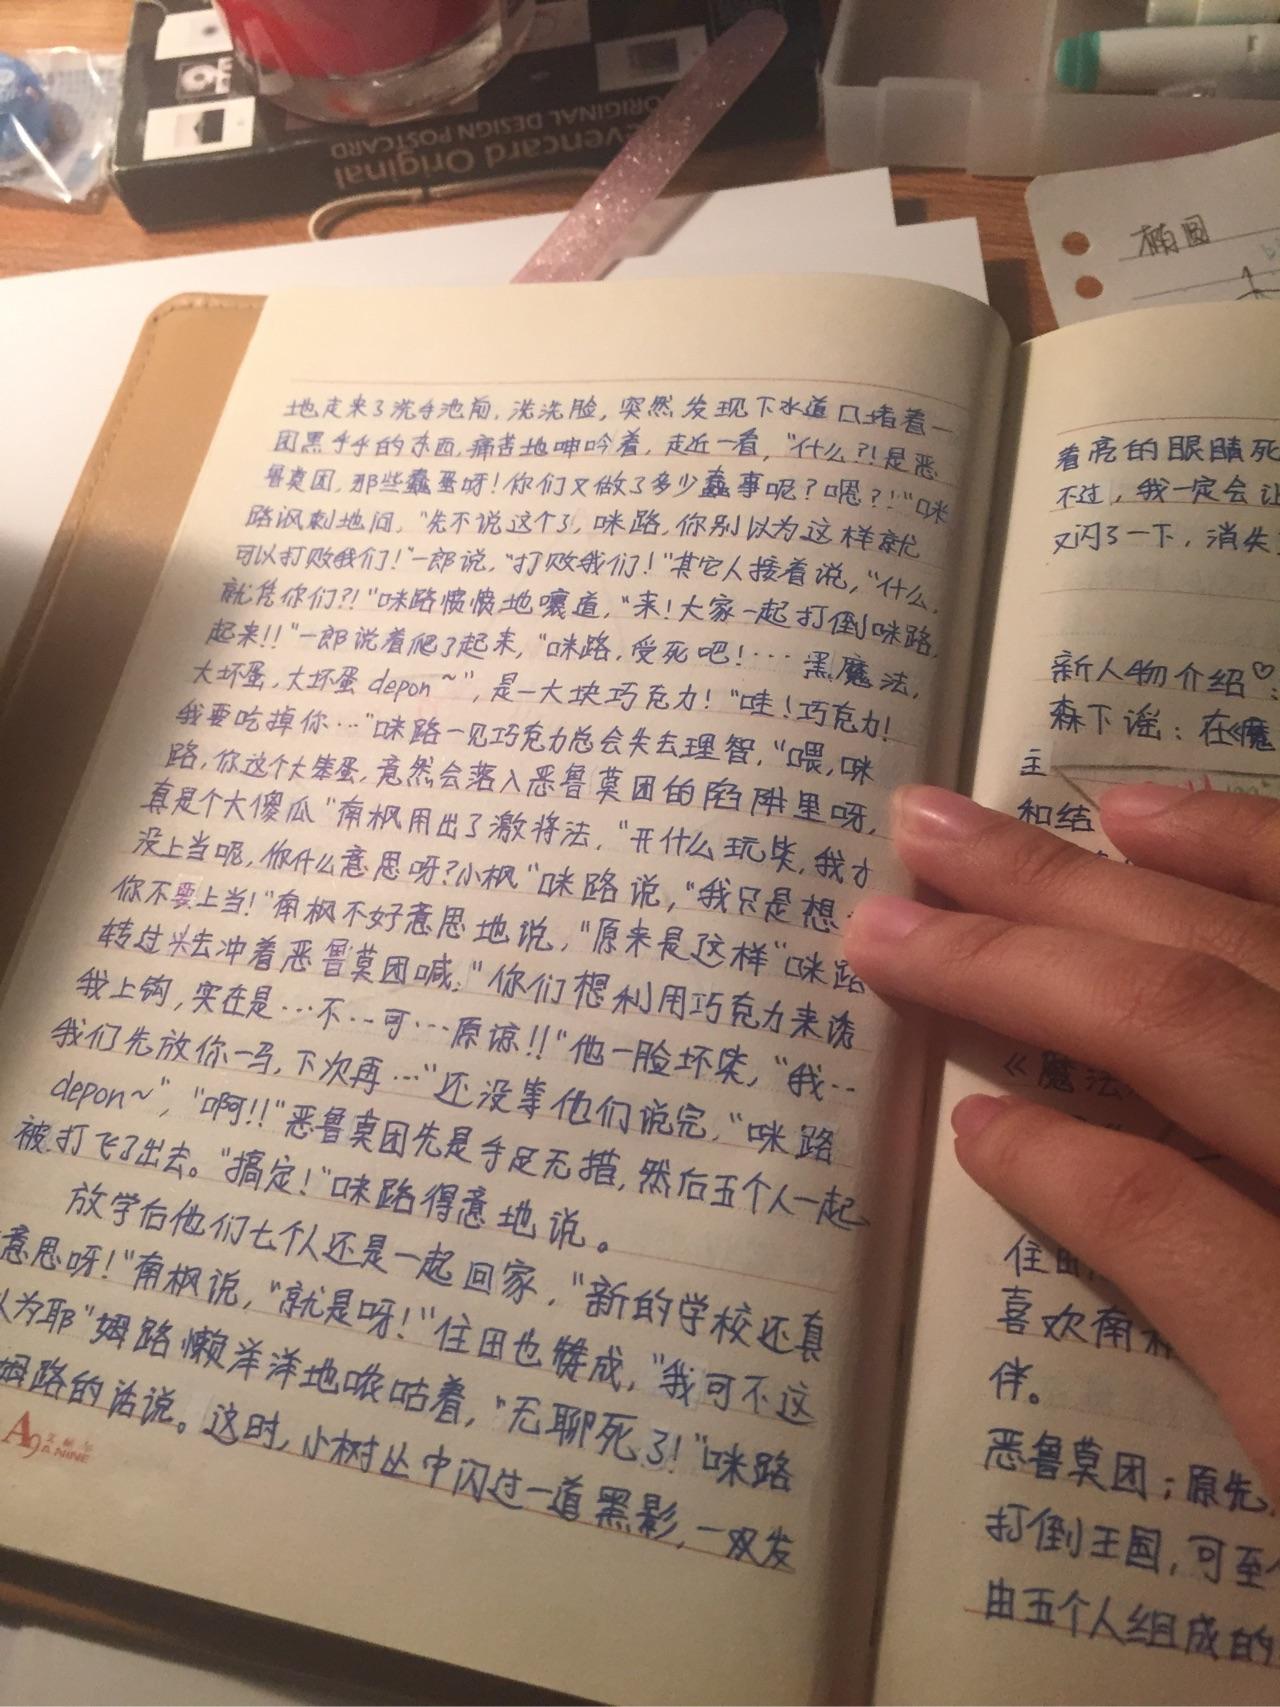 evencard Original
ORIGINAL DESIGN POSTCARD
椭圆
地走来了洗手池前,洗洗脸,突然,发现下水道口堵着一
团黑乎乎的东西,痛苦地呻吟着,走近一看,"什么?!是恶
鲁莫团,那些蠢蛋呀!你们又做了多少蠢事呢?嗯?!"咪
路讽刺地问,"先不说这个了,咪路,你别以为这样就
可以打败我们!"一郎说,"打败我们!"其它人接着说,"什么,
就凭你们?!"咪路愤愤地嚷道,"来!大家一起打倒咪路,
起来!!"一郎说着爬了起来,"咪路,受死吧!… 黑魔法,
大坏蛋,大坏蛋depon~",是一大块巧克力!"哇!巧克力!
我要吃掉你…"咪路一见巧克力总会失去理智,"喂,咪
路,你这个大笨蛋,竟然会落入恶鲁莫团的陷阱里呀,
真是个大傻瓜"南枫用出了激将法,"开什么玩笑,我才
没上当呢,你什么意思呀?小枫"咪路说,"我只是想
你不要上当!"南枫不好意思地说,"原来是这样"咪路
转过头去冲着恶鲁莫团喊:"你们想利用巧克力来诱
我上钩,实在是…不…可…原谅!!"他一脸坏笑,"我…
我们先放你一马,下次再…"还没等他们说完,"咪路
depon~","啊!!"恶鲁莫团先是手足无措,然后五个人一起
被打飞了出去。"搞定!"咪路得意地说。
放学后他们七个人还是一起回家,"新的学校还真
意思呀!"南枫说,"就是呀!"住田也赞成,"我可不这
认为耶"姆路懒洋洋地哝咕着,"无聊死了!"咪路
姆路的话说。这时,小树丛中闪过一道黑影,一双发
A9
A NINE
着亮的眼睛死
不过,我一定会让
又闪了一下,消失
新人物介绍♡:
森下谣:在《魔
主
和结
《魔法
住田
喜欢南
伴。
恶鲁莫团;原先
打倒王国,可至
由五个人组成的